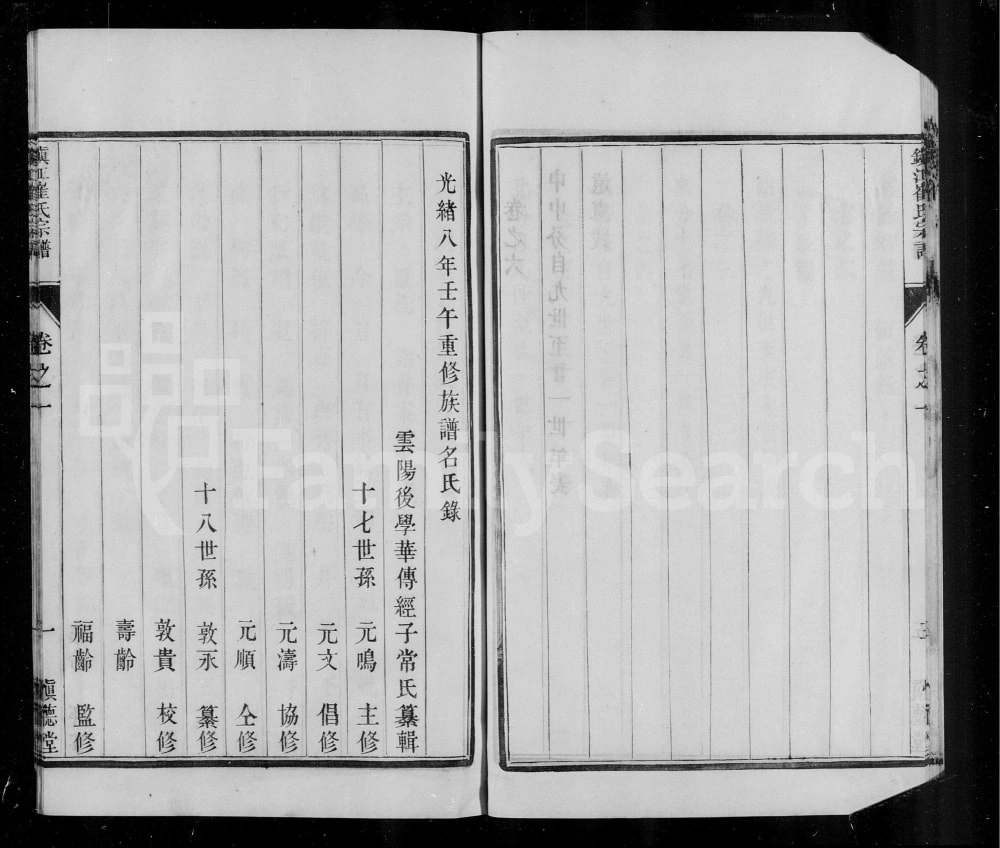 鎭江崔氏宗譜
卷之一
光緒八年壬午重修族譜名氏錄
雲陽後學華傳經子常氏纂輯
十七世孫 元鳴 主修
元文 倡修
元濤 協修
元順 仝修
十八世孫 敦永 纂修
敦貴 校修
壽齡
福齡 監修
鎭江崔氏宗譜
卷之一
一
愼德堂